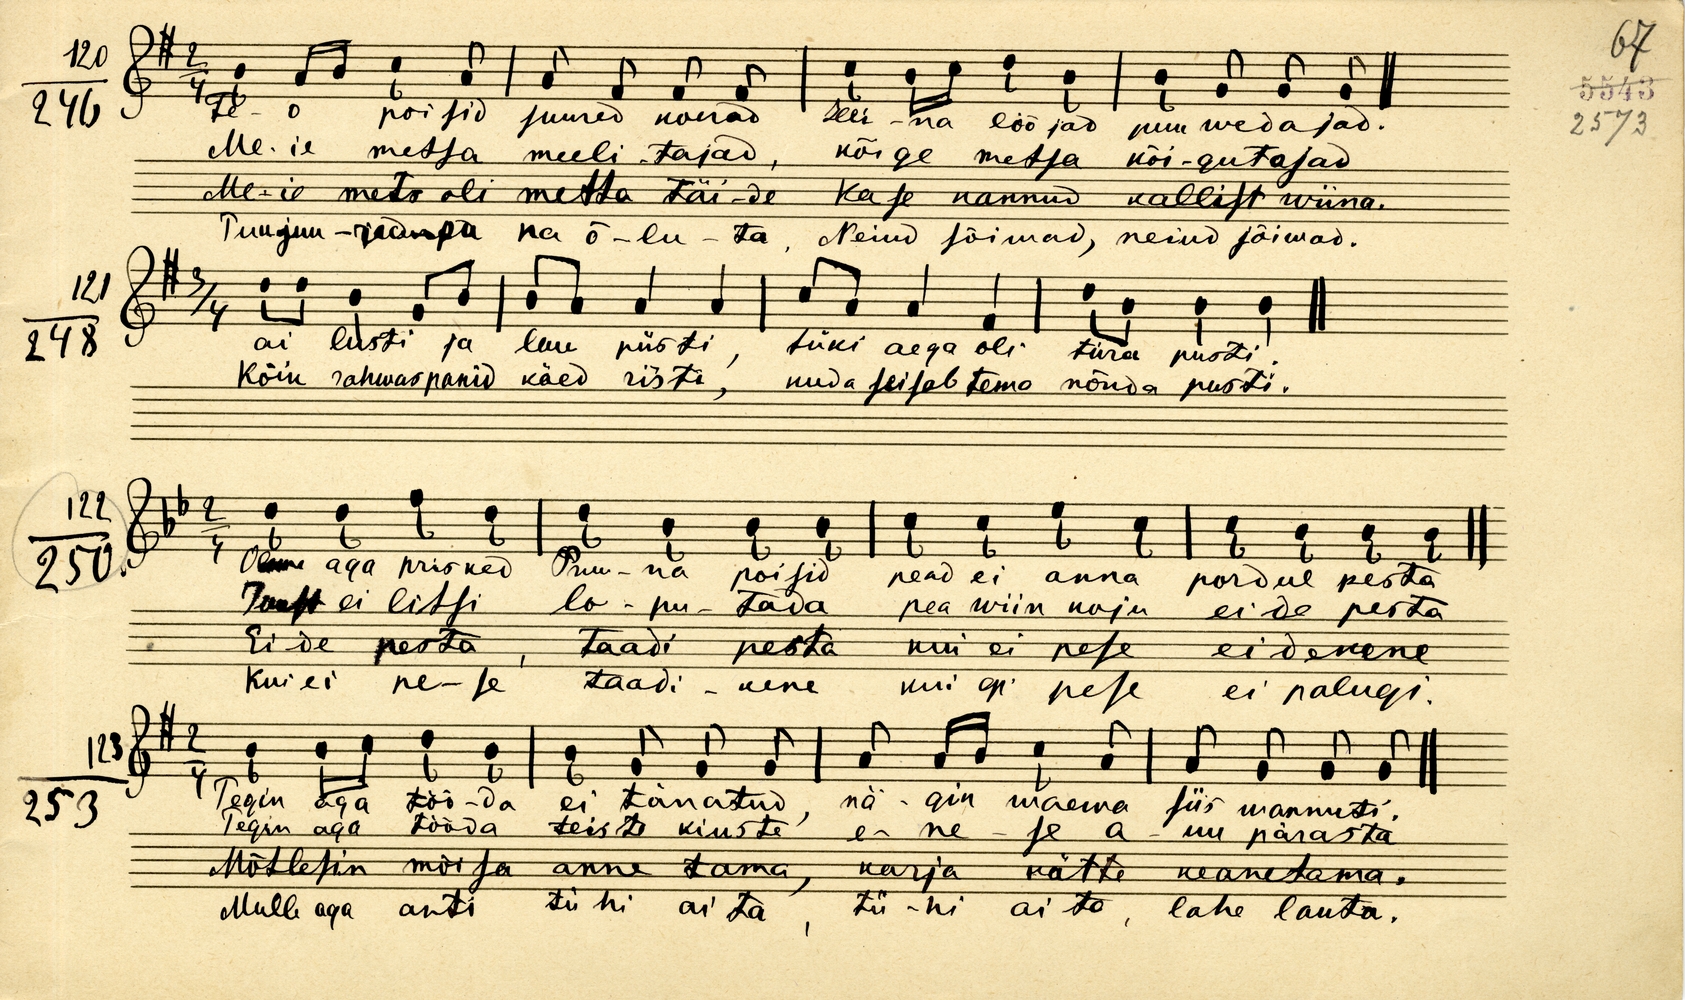 67
5543
2573
120
246
2/4
Te-o poisid suured koerad Seli-na lööjad puu wedajad.
Me-ie metsa meeli-tajad, kõige metsa kõi-gutajad
Me-ie mets oli metta täi-de Kase kannud kallist wiina.
Puujuu-rjaumpa na õ-lu-ta, Neiud jõiwad, neiud jõiwad.
121
248
3/4
ai lusti ja lau püsti, tüki aega oli türa pusti.
Kõik rahwas panid käed risti, kuda seisab tema nõnda pusti.
122
250.
2/4
Olime aga prisked Puu-na poisid pead ei anna pordul pesta
ei litsi lo-pu-tada pea wiin koju ei de pesta
Ei-de pesta, taadi pesta kui ei pese ei dekene
Kui ei pe-se taadi-kene kui ep pese ei palugi.
123
253
2/4
Tegin aga töö-da ei tänatud, nä-gin waewa siis wannuti.
Tegin aga tööda teiste kiuste e-ne-se a-uu pärasta
Mõtlesin mõisa anne tama, karja kätte keanetama.
Mulle aga anti tü hi ai ta, tü-hi ai ta, lahe lauta.